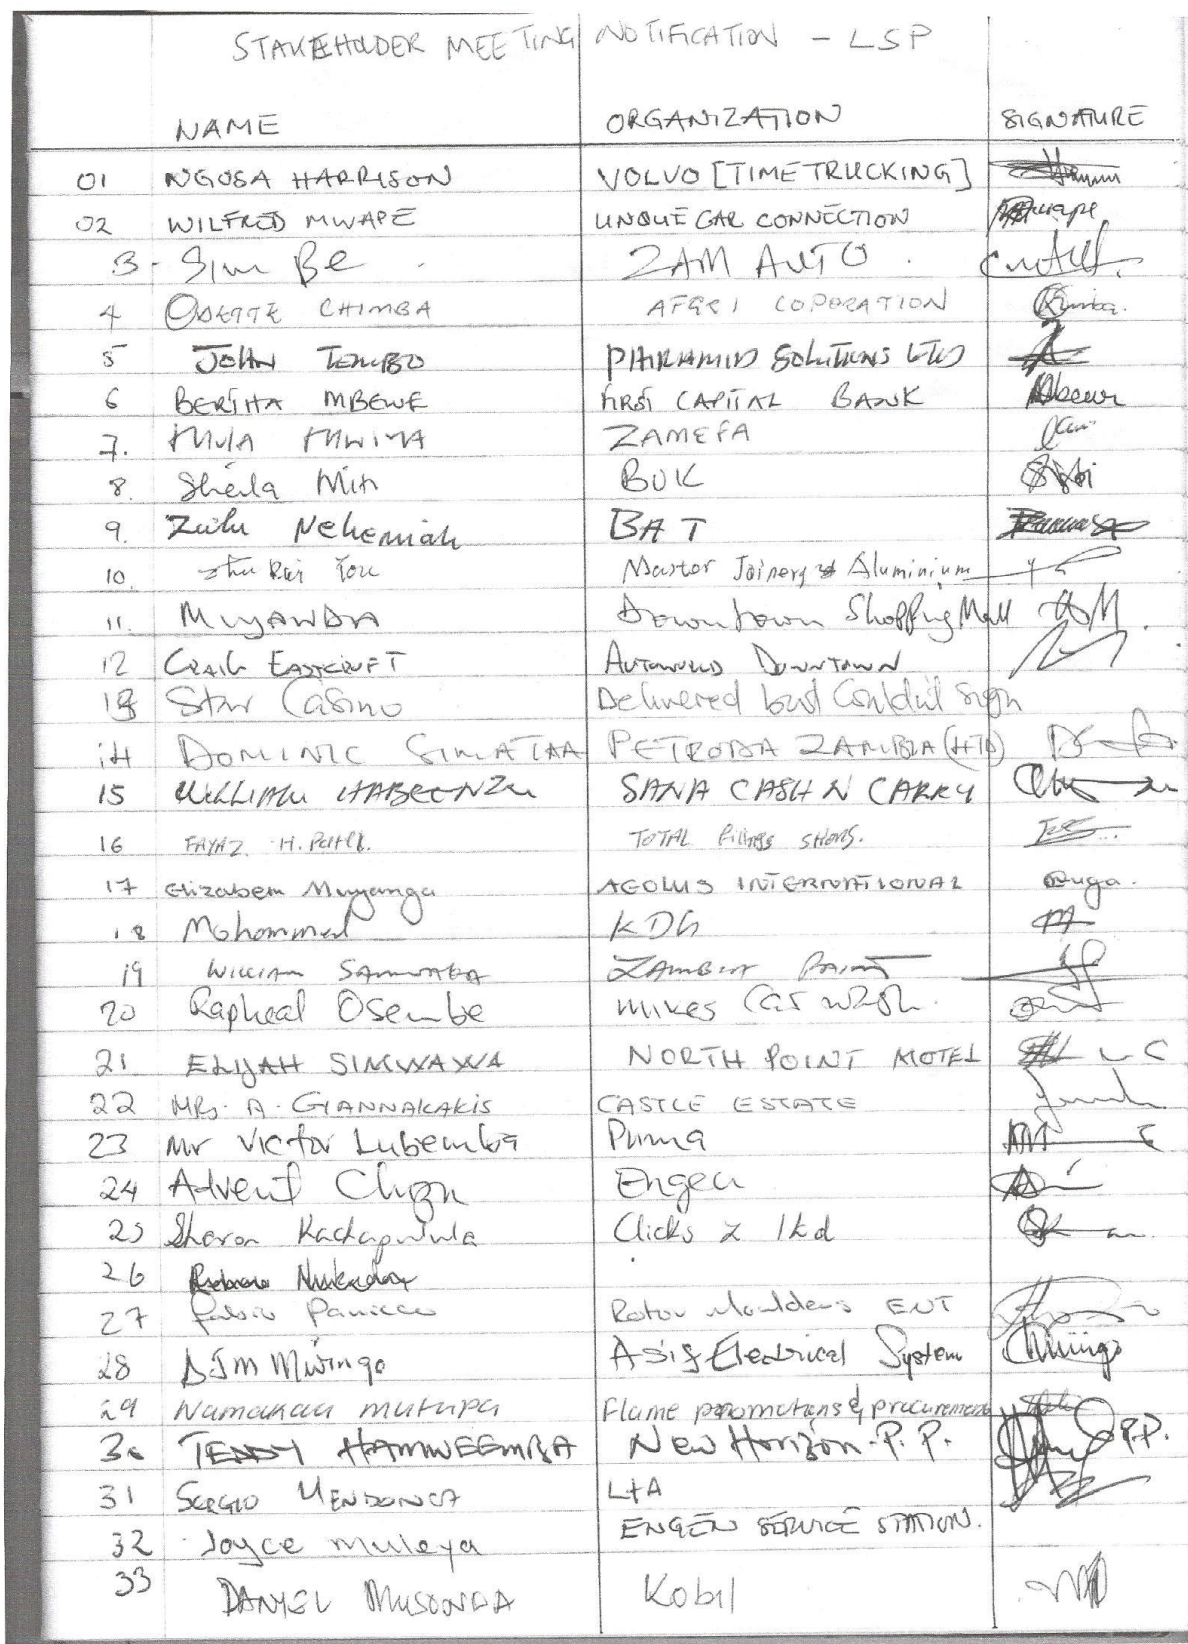 STAKEHOLDER MEETING NOTIFICATION - LSP
NAME ORGANIZATION SIGNATURE
01 NGOSA HARRISON VOLVO [TIME TRUCKING]
02 WILFRED MWAPE UNQUE CAR CONNECTION
3 - Sim Be ZAM AUTO
4 ODETTE CHIMBA AFGRI COPORATION
5 JOHN TEMBO PHIRAMID SOLUTIONS LTD
6 BERTHA MBEWE FIRST CAPITAL BANK
7. ZAMEFA
8. Sheila BUK
9. Zulu Nehemiah BAT
10. You Master Joinery & Aluminium
11. MUYANDA Downtown Shopping Mall
12 CRAIG EASTCROFT AUTOWORLD DOWNTOWN
13 Star Casino Delivered but Couldn't sign
14 DOMINIC SIMATAA PETRODA ZAMBIA (HTD)
15 WILLIAM HABEENZU SANA CASH N CARRY
16 FAYAZ H. Patel. TOTAL
17 Elizabeth Muyanga AEOLUS INTERNATIONAL
18 Mohammed KDG
19 WILLIAM ZAMBIA PAINT
20 Rapheal Osembe Mikes Car Wash.
21 ELIJAH SIMWAWA NORTH POINT MOTEL
22 MRS. A. GIANNAKAKIS CASTLE ESTATE
23 Mr Victor Lubemba Puma
24 Advent Engen
25 Sharon Kachapulula Clicks 2
26
27 Fabio Rotor Moulders ENT
28 Mwiingo Asif Electrical System
29 Namakau mutupa Flame promotions & procurement
30 TEDDY HAMWEEMBA New Horizon P.P. P.P.
31 SERGIO MENDONCA
32 Joyce muleya ENGEN SERVICE STATION.
33 DANIEL MUSONDA Kobil